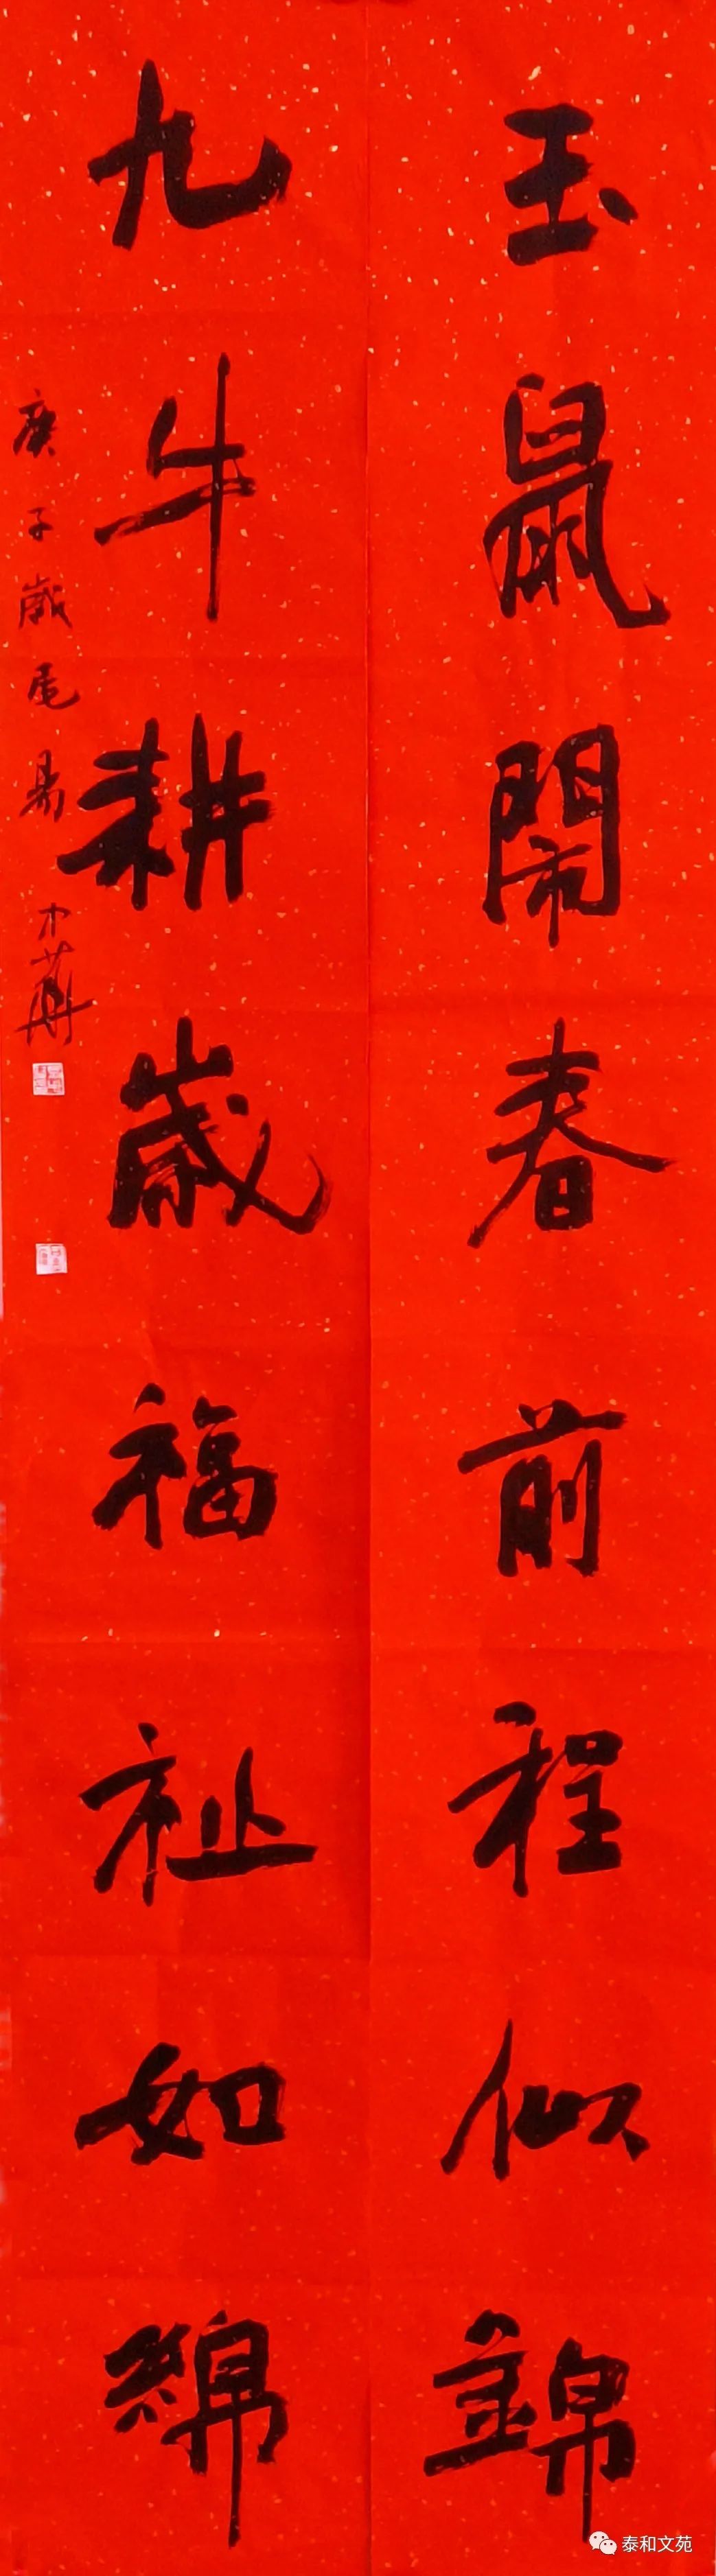 玉鼠鬧春前程似錦
九牛耕歲福祉如綿
庚子歲尾易
泰和文苑